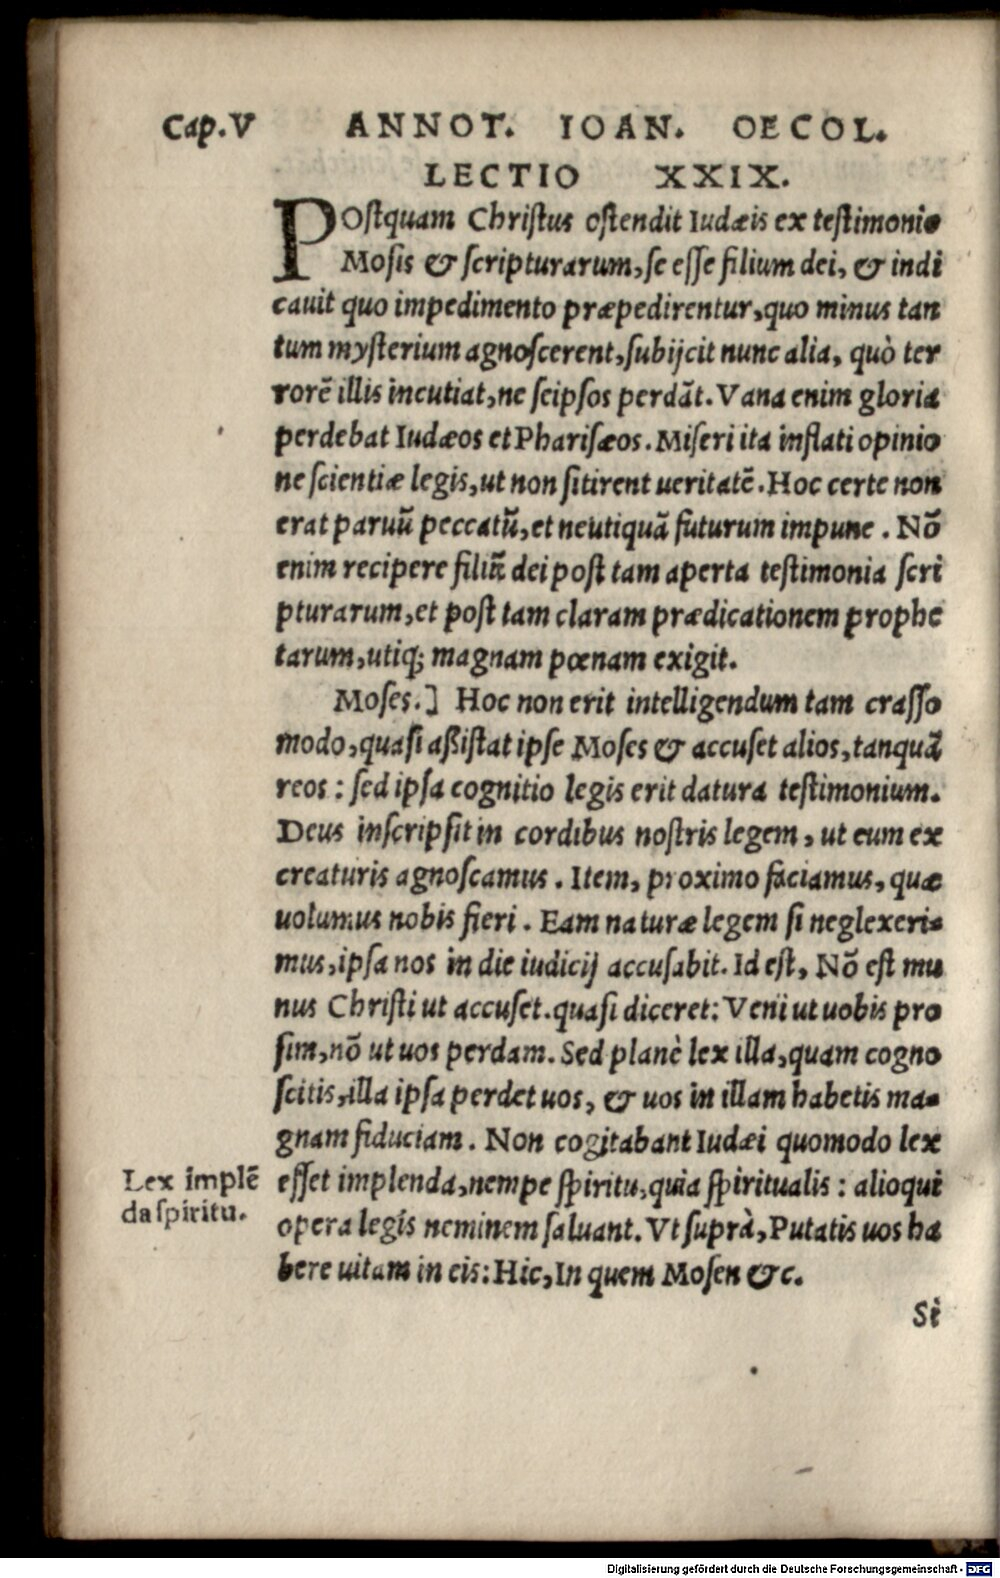 Cap.V ANNOT. IOAN. OECOL.
LECTIO XXIX.
POstquam Christus ostendit Iudæis ex testimonio
Mosis & scripturarum, se esse filium dei, & indi
cauit quo impedimento præpedirentur, quo minus tan
tum mysterium agnoscerent, subijcit nunc alia, quò ter
rorē illis incutiat, ne seipsos perdāt. Vana enim gloria
perdebat Iudæos et Pharisæos. Miseri ita inflati opinio
ne scientiæ legis, ut non sitirent ueritatē. Hoc certe non
erat paruū peccatū, et neutiquā futurum impune. Nō
enim recipere filiū dei post tam aperta testimonia scri
pturarum, et post tam claram prædicationem prophe
tarum, utiq; magnam pœnam exigit.
Moses.] Hoc non erit intelligendum tam crasso
modo, quasi aßistat ipse Moses & accuset alios, tanquā
reos: sed ipsa cognitio legis erit datura testimonium.
Deus inscripsit in cordibus nostris legem, ut eum ex
creaturis agnoscamus. Item, proximo faciamus, quæ
uolumus nobis fieri. Eam naturæ legem si neglexeri-
mus, ipsa nos in die iudicij accusabit. Id est, Nō est mu
nus Christi ut accuset. quasi diceret: Veni ut uobis pro
sim, nō ut uos perdam. Sed planè lex illa, quam cogno
scitis, illa ipsa perdet uos, & uos in illam habetis ma-
gnam fiduciam. Non cogitabant Iudæi quomodo lex
Lex implē
da spiritu.
esset implenda, nempe spiritu, quia spiritualis: alioqui
opera legis neminem saluant. Vt suprà, Putatis uos ha
bere uitam in eis: Hic, In quem Mosen &c.
Si
Digitalisierung gefördert durch die Deutsche Forschungsgemeinschaft - DFG